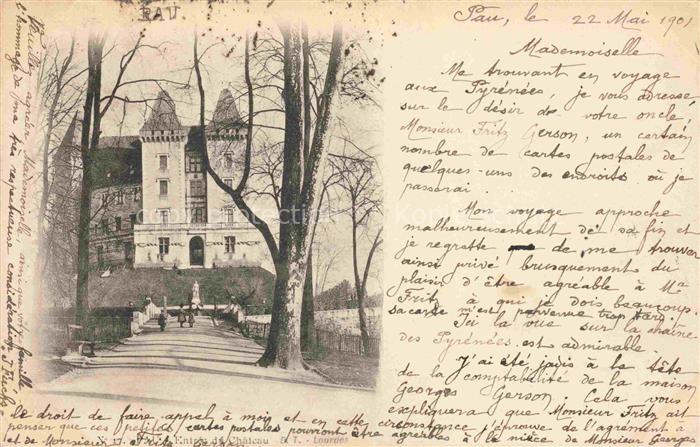 PAU
Pau, le 22 Mai 1901
Mademoiselle
Me trouvant en voyage
aux Pyrénées, je vous adresse
sur le désir de votre oncle,
Monsieur Fritz Gerson, un certain
nombre de cartes postales de
quelques-uns des endroits où je
passerai.
Mon voyage approche
malheureusement de sa fin et
je regrette de me trouver
ainsi privé brusquement du
plaisir d'être agréable à Mr
Fritz, à qui je dois beaucoup.
Sa carte m'est parvenue trop tard.
Ici la vue sur la chaîne
des Pyrénées est admirable.
J'ai été jadis à la tête
de la comptabilité de la maison
Georges Gerson. Cela vous
expliquera que Monsieur Fritz ait
le droit de faire appel à moi et en cette circonstance j'éprouve de l'agrément à
penser que ces petites cartes postales pourront être agréables à la nièce de Monsieur Georges
et de Monsieur Fritz Gerson.
Veuillez agréer Mademoiselle, ainsi que votre famille
l'hommage de ma très respectueuse considération
N° 17. Entrée du Château D. T. - Lourdes